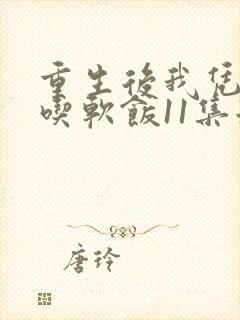 重生後我凭
喫軟飯11集
唐玲